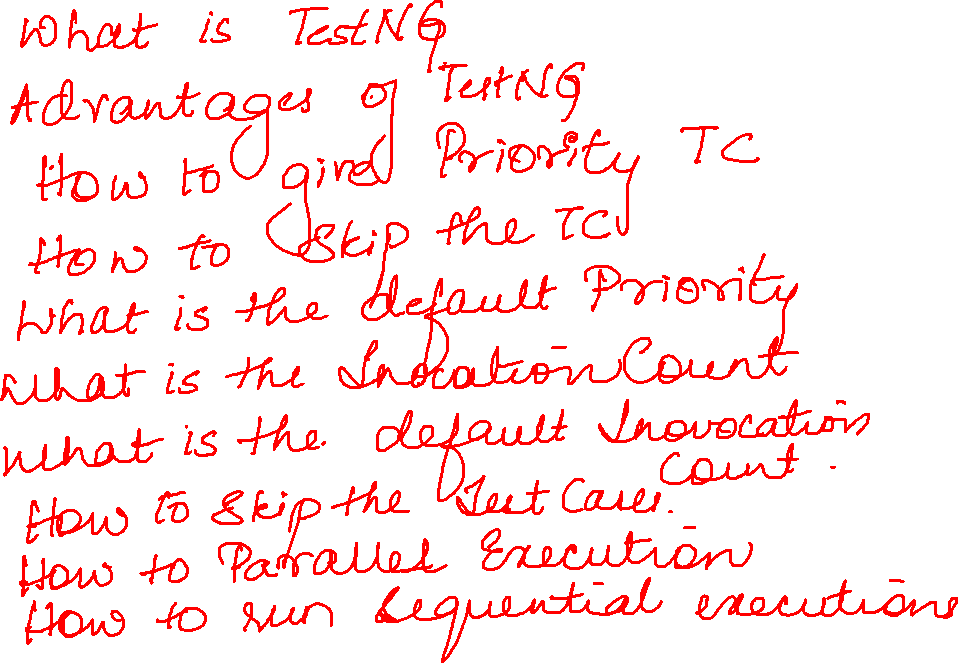 What is TestNG
Advantages of TestNG
How to gived Priority TC
How to Skip the TC
What is the default Priority
What is the Inocation Count
What is the default Inovocation
Count.
How to Skip the Test Cases.
How to Parallel Execution
How to run Sequential executions